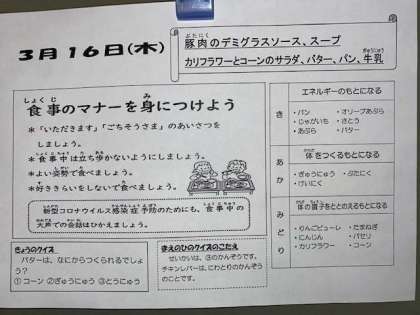 3月16日(木)
豚肉のデミグラスソース、スープ
カリフラワーとコーンのサラダ、バター、パン、牛乳
食事のマナーを身につけよう
＊「いただきます」「ごちそうさま」のあいさつを
しましょう。
＊食事中は立ち歩かないようにしましょう。
＊よい姿勢で食べましょう。
＊好ききらいをしないで食べましょう。
新型コロナウイルス感染症予防のためにも、食事中の
大声での会話はひかえましょう。
きょうのクイズ
バターは、なにからつくられるでしょ
う？
①コーン ②ぎゅうにゅう ③とうにゅう
まえのひのクイズのこたえ
せいかいは、③のかんぞうです。
チキンレバーは、にわとりのかんぞう
のことです。
き
エネルギーのもとになる
・パン ・オリーブあぶら
・じゃがいも ・さとう
・あぶら ・バター
あか
体をつくるもとになる
・ぎゅうにゅう ・ぶたにく
・けいにく
みどり
体の調子をととのえるもとになる
・りんごピューレ ・たまねぎ
・にんじん ・パセリ
・カリフラワー ・コーン